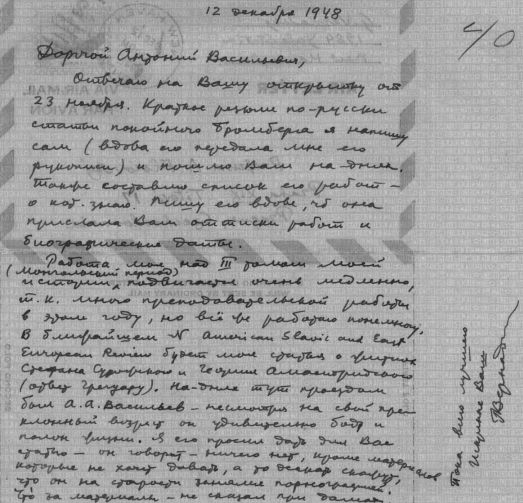 12 декабря 1948
40
Дорогой Антоний Васильевич,
Отвечаю на Вашу открытку от
23 ноября. Краткое резюме по-русски
статьи покойного Бромберга я напишу
сам (вдова его передала мне его
рукописи) и пошлю Вам на-днях.
Также составлю список его работ –
о кот. знаю. Пишу его вдове, чтоб она
прислала Вам оттиски работ и
биографические даты.
Работа моя над III томом моей
(Монгольский период)
истории подвигается очень медленно,
т.к. много преподавательской работы
в этом году, но всё же работаю понемногу.
В ближайшем N American Slavic and East
European Review будет моя статья о житиях
Стефана Сурожского и Георгия Амастридского
(ответ Грегуару). На-днях тут проездом
был А.А. Васильев – несмотря на свой пре-
клонный возраст он удивительно бодр и
полон жизни. Я его просил дать для Вас
статью – он говорит – ничего нет, кроме материалов
которые не хочет давать, а то дескать скажут,
что он на старости занялся порнографией.
Что за материалы – не сказал при дамах
Пока всего лучшего
Искренне Ваш
Г Вернадский
VIA AIR MAIL
PAR AVION